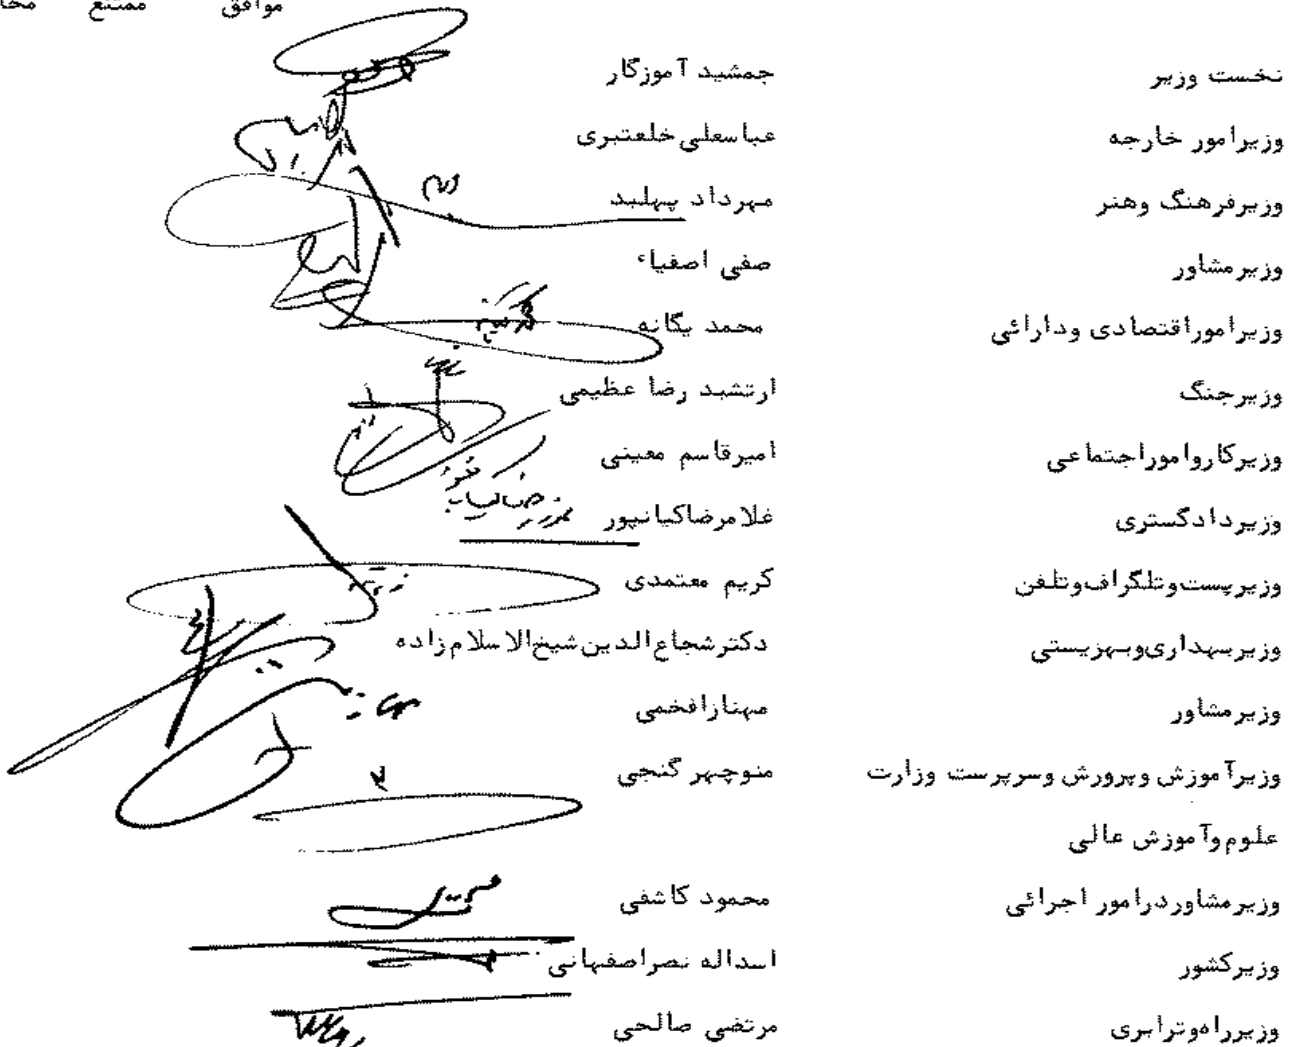 موافق ممتنع
نخست وزیر جمشید آموزگار
وزیرامور خارجه عباسعلی خلعتبری
وزیرفرهنگ وهنر مهرداد پهلبد
وزیرمشاور صفی اصفیاء
وزیراموراقتصادی ودارائی محمد یگانه
وزیرجنگ ارتشبد رضا عظیمی
وزیرکارواموراجتماعی امیرقاسم معینی
وزیردادگستری غلامرضاکیانپور
وزیرپست‌وتلگراف‌وتلفن کریم معتمدی
وزیربهداری‌وبهزیستی دکترشجاع‌الدین‌شیخ‌الاسلام‌زاده
وزیرمشاور مهنازافخمی
وزیرآموزش وپرورش وسرپرست وزارت منوچهر گنجی
علوم وآموزش عالی
وزیرمشاوردرامور اجرائی محمود کاشفی
وزیرکشور اسداله نصراصفهانی
وزیرراه‌وترابری مرتضی صالحی